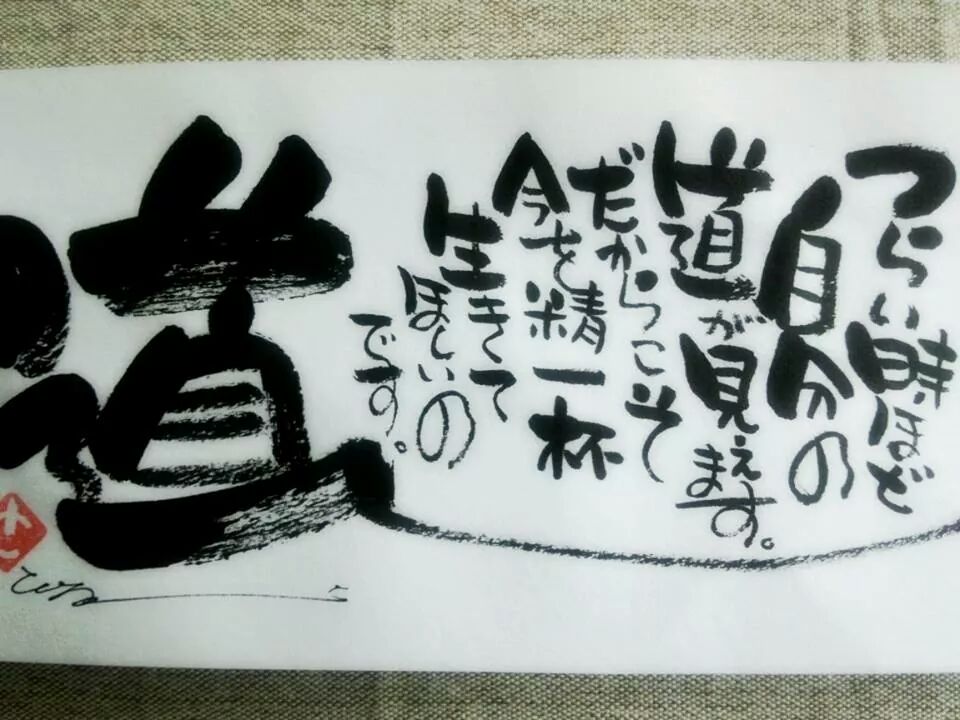 つらい時ほど
自分の
道が見えます。
だからこそ
今を精一杯
生きて
ほしいの
です。
道